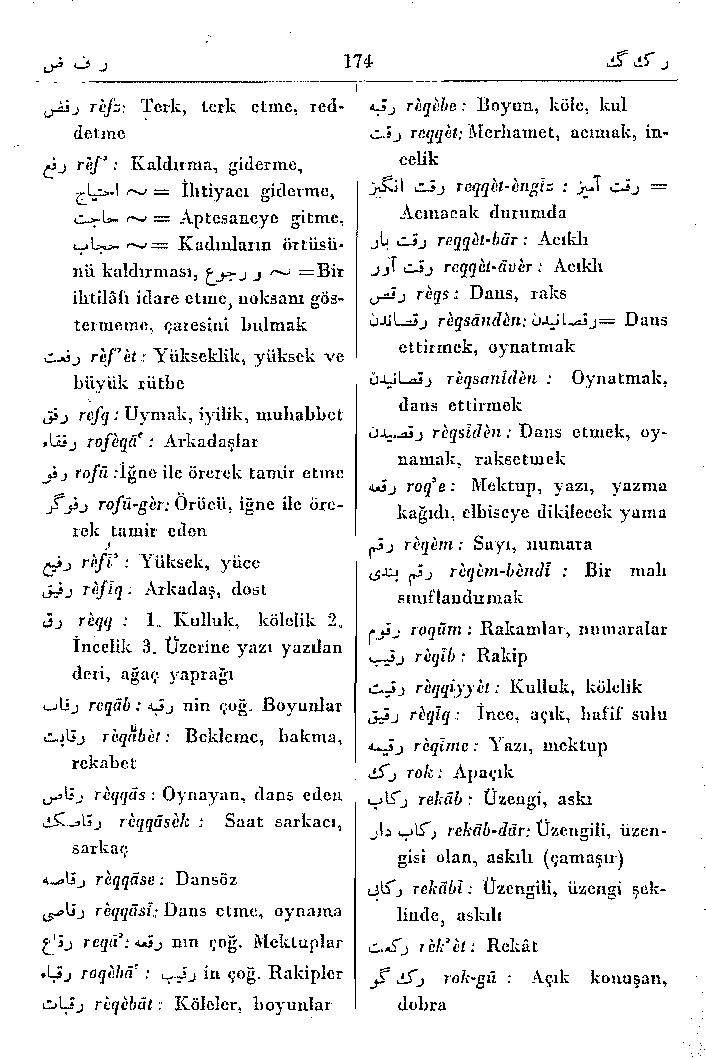 ر ف ض
174
ر ک گ
رفض rèfz: Terk, terk etme, red-
detme
رفع rèf' : Kaldırma, giderme,
احتیاج ~ = İhtiyacı giderme,
حاجت ~ = Aptesaneye gitme,
حجاب ~ = Kadınların örtüsü-
nü kaldırması, رجوع و ~ =Bir
ihtilâfı idare etme, noksanı gös-
termeme, çaresini bulmak
رفعت rèf'èt : Yükseklik, yüksek ve
büyük rütbe
رفق refq : Uymak, iyilik, muhabbet
رفقاء rofèqā' : Arkadaşlar
رفو rofū :İğne ile örerek tamir etme
رفوگر rofū-gèr: Örücü, iğne ile öre-
rek tamir eden
رفیع rèfī' : Yüksek, yüce
رفیق rèfīq : Arkadaş, dost
رق rèqq : 1. Kulluk, kölelik 2.
İncelik 3. Üzerine yazı yazılan
deri, ağaç yaprağı
رقاب reqāb : رقبه nin çoğ. Boyunlar
رقابت rèqābèt : Bekleme, bakma,
rekabet
رقاص rèqqās : Oynayan, dans eden
رقاصک rèqqāsèk : Saat sarkacı,
sarkaç
رقاصه rèqqāse : Dansöz
رقاصی rèqqāsī: Dans etme, oynama
رقاع reqā': رقعه nın çoğ. Mektuplar
رقباء roqèbā' : رقیب in çoğ. Rakipler
رقبات rèqèbāt : Köleler, boyunlar
رقبه rèqèbe : Boyun, köle, kul
رقت reqqèt: Merhamet, acımak, in-
celik
رقت انگیز reqqèt-èngīz : رقت آمیز =
Acınacak durumda
رقت بار reqqèt-bār : Acıklı
رقت آور reqqèt-āvèr : Acıklı
رقص rèqs : Dans, raks
رقصاندن rèqsāndèn: رقصانیدن= Dans
ettirmek, oynatmak
رقصانیدن rèqsanīdèn : Oynatmak,
dans ettirmek
رقصیدن rèqsīdèn : Dans etmek, oy-
namak, raksetmek
رقعه roq'e : Mektup, yazı, yazma
kağıdı, elbiseye dikilecek yama
رقم rèqèm : Sayı, numara
رقم بندی rèqèm-bèndī : Bir malı
sınıflandırmak
رقوم roqūm : Rakamlar, numaralar
رقیب rèqīb : Rakip
رقیت rèqqiyyèt : Kulluk, kölelik
رقیق rèqīq : İnce, açık, hafif sulu
رقیمه rèqīme : Yazı, mektup
رک rok : Apaçık
رکاب rekāb : Üzengi, askı
رکاب دار rekāb-dār: Üzengili, üzen-
gisi olan, askılı (çamaşır)
رکابی rekābī : Üzengili, üzengi şek-
linde, askılı
رکعت rèk'èt : Rekât
رک گو rok-gū : Açık konuşan,
dobra